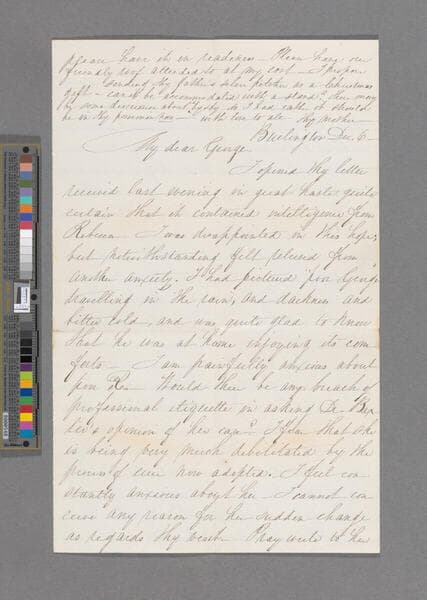 please have it in readiness - Please have our
friendly roof attended to at my cost - I propose
sending thy father's silver pitcher as a Christmas
gift - can it be accommodated with a stand? There may
by some discussion about so I had rather it should
be in thy possession - with love to all thy mother -
Burlington Dec 6 -
My dear George
I opened thy letter
received last evening in great haste quite
certain that it contained intelligence from
Rebecca I was disappointed in this hope,
but notwithstanding felt relieved from
another anxiety. I had pictured poor George
travelling in the rain, and darkness and
bitter cold, and was quite glad to know
that he was at home enjoying its com
forts - I am painfully anxious about
poor Re Would there be any breach of
professional etiquette in asking Dr
opinion of her case? I fear that she
is being very much debilitated by the
process of cure now adopted. I feel con
stantly anxious about her I cannot con
ceive any reason for her sudden change
as regards thy Pray write to her